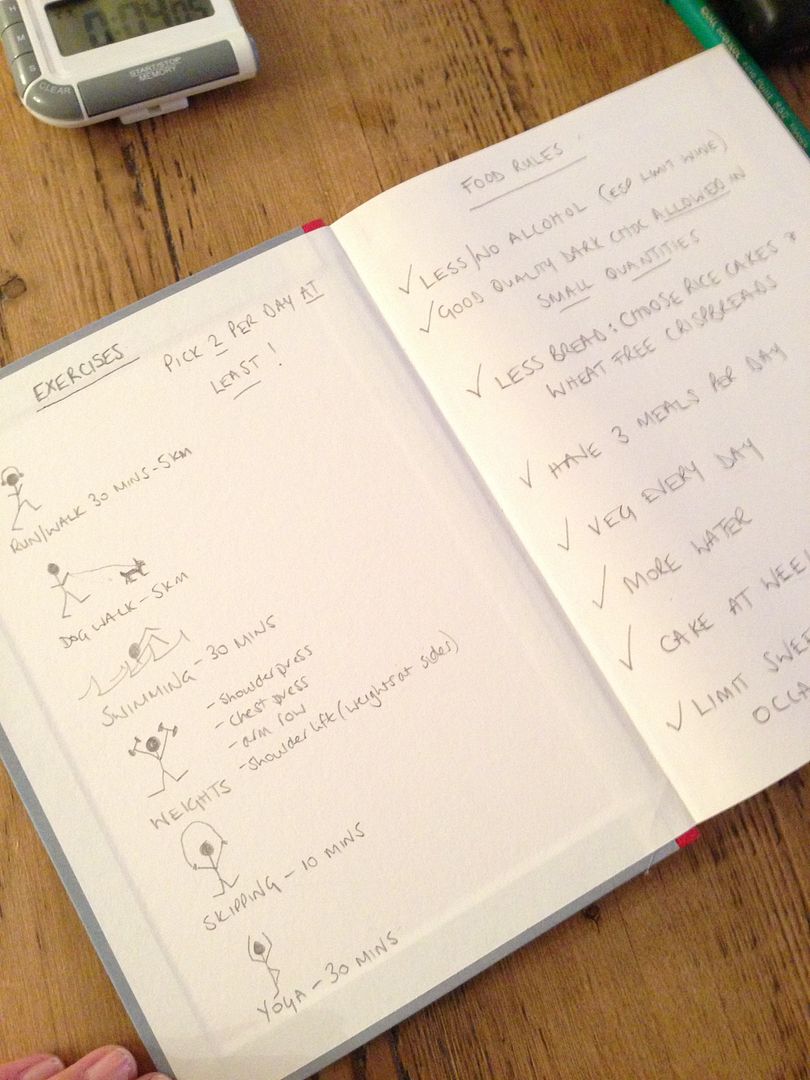 H
M
S
CLEAR
START/STOP
MEMORY
EXERCISES
PICK 2 PER DAY AT
LEAST!
RUN/WALK 30 MINS-5KM
DOG WALK - 5KM
SWIMMING - 30 MINS
- shoulder press
- chest press
- arm row
- shoulder lift (weights at sides)
WEIGHTS
SKIPPING - 10 MINS
YOGA - 30 MINS
FOOD RULES
✓ LESS/NO ALCOHOL (ESP LIMIT WINE)
✓ GOOD QUALITY DARK CHOC ALLOWED IN
SMALL QUANTITIES
✓ LESS BREAD: CHOOSE RICE CAKES &
WHEAT FREE CRISPBREADS
✓ HAVE 3 MEALS PER DAY
✓ VEG EVERY DAY
✓ MORE WATER
✓ CAKE AT WEE
✓ LIMIT SWEE
OCCA